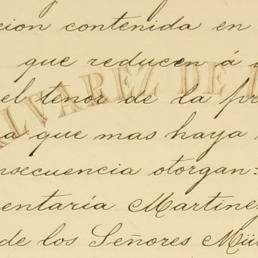 cion contenida en
que reducen á
el tenor de la pr
ALVAREZ DE
a que mas haya
nsecuencia otorgan:
entaría Martinez
de los Señores Mü